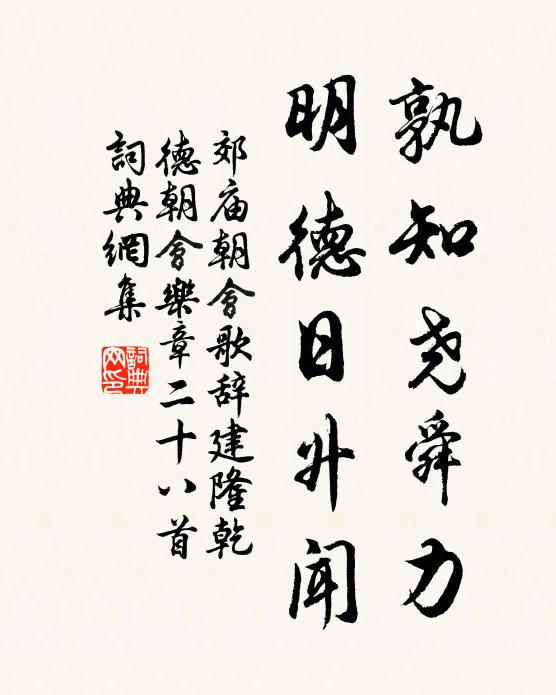 孰知尧舜力
明德日升闻
郊庙朝會歌辞建隆乾
德朝會樂章二十八首
詞典網集
詞典网印